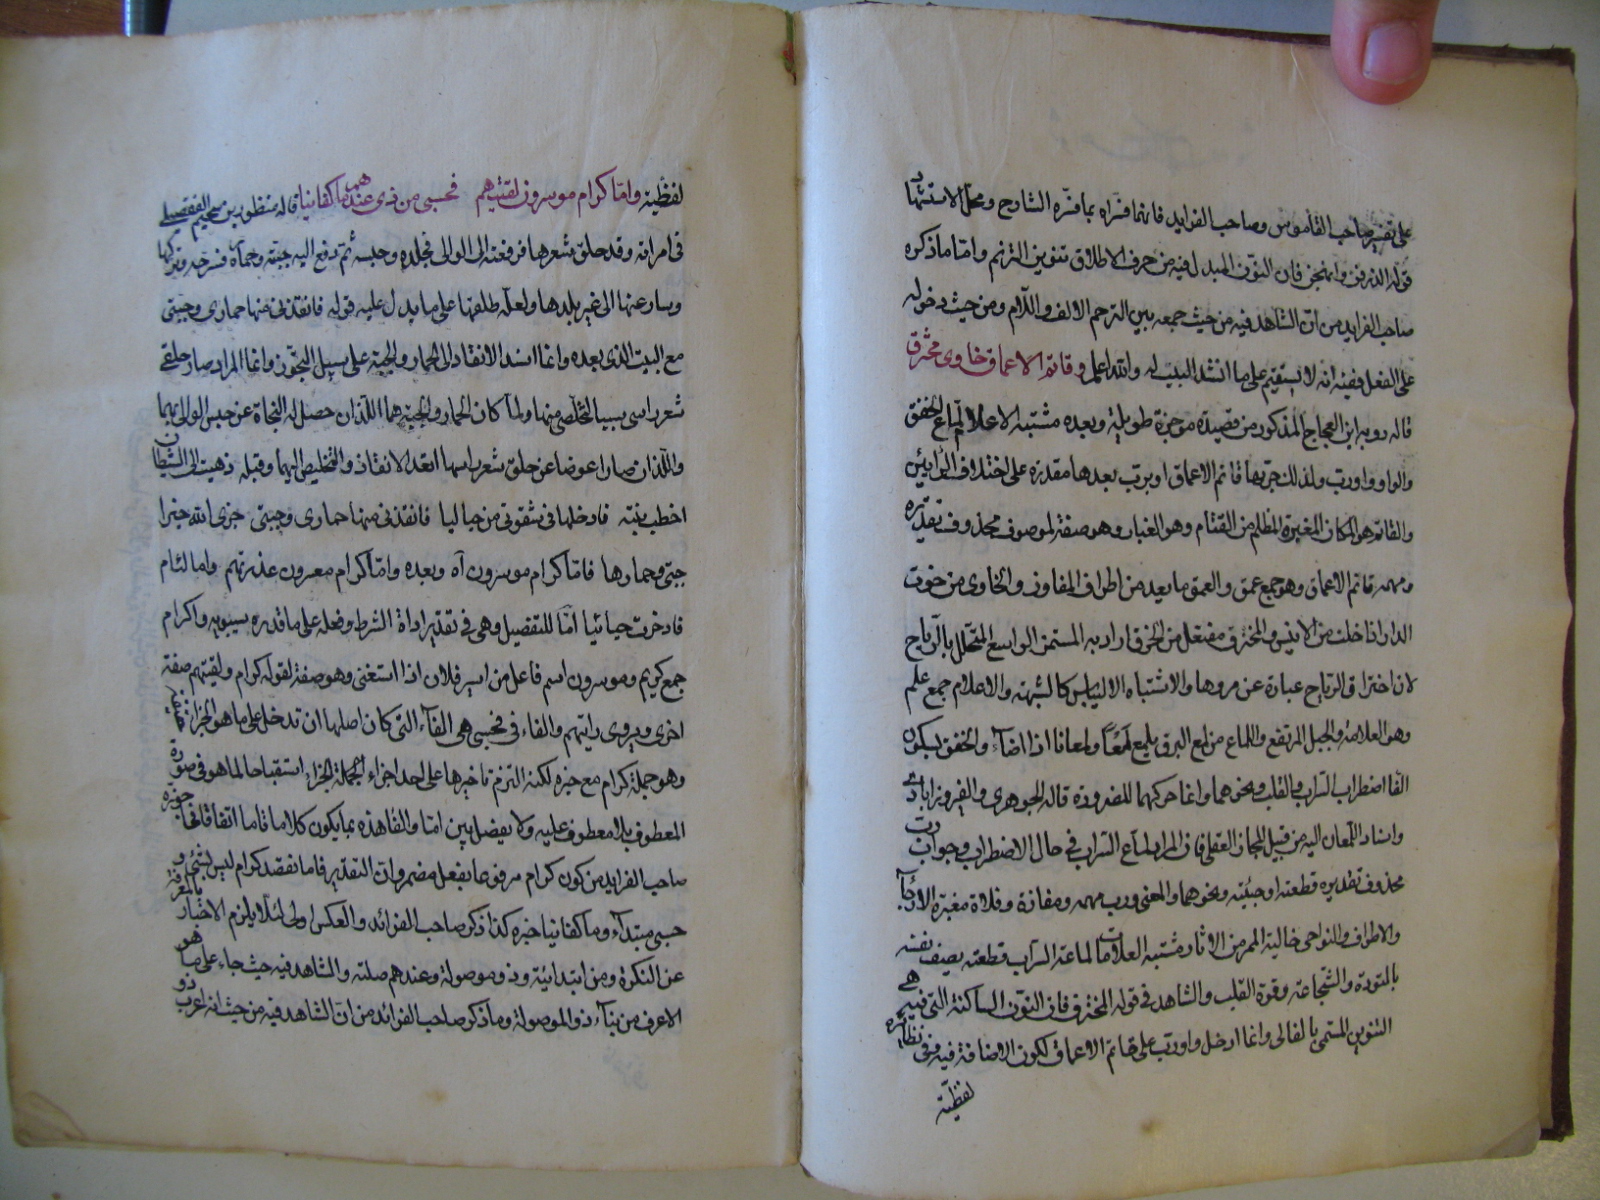 على تفسير صاحب القاموس وصاحب الفرايد فانما فسراه بما فسره الشارح ومحل الاستشهاد
قوله الذرفن وانهجن فان النون المبدل فيه من حرف الاطلاق تنوين الترنم واما ما ذكره
صاحب الفرايد من ان الشاهد فيه من حيث جمعه بين الترخم الالف واللام ومن حيث دخوله
على الفعل ففيه انه لا يستقيم على ما انشد البيت له والله اعلم وقاتم الاعماق خاوى مخترق
قاله روبه ابن العجاج المذكور من قصيدة موجزة طويلة وبعده مشتبه الاعلام لماع الخفق
والواو واو رب ولذلك جر بها قاتم الاعماق او برب بعدها مقدرة على اختلاف الرأيين
والقاتم هو المكان المغبرة المظلم من القتام وهو الغبار وهو صفة لموصوف محذوف تقديره
ومهمه قاتم الاعماق وهو جمع عمق والعمق ما بعد من اطراف المفاوز والخاوى من خوت
الدار اذا خلت من الانيس والمخترق مفتعل من الخرق اراد به المستمر الواسع المتخلل بالرياح
لان اختراق الرياح عبارة عن مرورها والاشتباه الالتباس كالشبهة والاعلام جمع علم
وهو العلامة والجبل المرتفع واللماع من لمع البرق يلمع لمعا ولمعانا اذا اضاء والخفق بسكون
الفا اضطراب السراب والقلب ونحوهما وانما حركهما للضرورة قاله الجوهرى والفيروزابادى
واسناد اللمعان اليه من قبيل المجاز العقلى فان المراد لماع السراب فى حال الاضطراب وجواب رب
محذوف تقديره قطعته او جبته ونحوهما والمعنى ورب مهمه ومفازة وفلاة مغبرة الارجآ
والاطراف والنواحى خالية الممر من الاثار مشتبه العلامات لماعة السراب قطعته يصف نفسه
بالتودة والشجاعة وقوة القلب والشاهد فى قوله المخترق فان النون الساكنة التى فيه هى
التنوين المسمى بالغالى وانما ادخل واو رب على قاتم الاعماق لكون الاضافة فيه وفى نظائره
لفظية
لفظية واما كرام موسرون لقيتهم فحسبى من ذى عندهم ما كفانيا قاله منظور بن سحيم الفقعسى
فى امراته وقد حلق شعرها فرفعته الى الوالى فجلده وحبسه ثم دفع اليه جبته وحماره فسرحه وتركها
وسار عنها الى غير بلدها ولعله طلقها على ما يدل عليه قوله فانقذنى منها حمارى وجبتى
مع البيت الذى بعده وانما اسند الانقاذ الى الحمار والجبة على سبيل التجوز وانما المراد صار حلقى
شعر راسى سببا لتخلصى منها ولما كان الحمار والجبة هما اللذان حصل له النجاة عن حبس الوالى بهما
واللذان صارا عوضا عن حلق شعر راسها اسند الانقاذ والتخليص اليهما وقبله ذهبت الى الشيطان
اخطب بنته فادخلها فى شقوتى من حباليا فانقذنى منها حمارى وجبتى جزى الله خيرا
جبتى وحماريا فاما كرام موسرون آه وبعده واما كرام معسرون عذرتهم واما لئام
فادخرت حيائيا اما للتفصيل وهى فى تقدير اداة الشرط وفعله على ما قدره سيبويه واكرام
جمع كريم وموسرون اسم فاعل من اسير فلان اذا استغنى وهو صفة لقوله كرام ولقيتهم صفة
اخرى ويروى رايتهم والفاء فى فحسبى هى الفآء التى كان اصلها ان تدخل على ما هو الجزاء
وهو جملة كرام مع خبره لكنه التزم تاخيرها على احد اجزاء الجملة الجزاء استقباحا لما هو فى صورة
المعطوف بلا معطوف عليه ولا يفصل بين اما والفا هذه بما يكون كلاما تاما اتفاقا فما جوزه
صاحب الفرايد من كون كرام مرفوعا بفعل مضمر وان التقدير فاما نقصد كرام ليس بشئ و
حسبى مبتدآء وما كفانيا خبره كذا ذكر صاحب الفرائد والعكس اولى لئلا يلزم الاخبار بالمعرفة
عن النكرة ومن ابتدائية وذو موصولة وعندهم صلته والشاهد فيه حيث جاء على ما هو
الاعرف من بنآء ذو الموصولة وما ذكر صاحب الفرائد من ان الشاهد فيه من حيث انه اعرب ذو